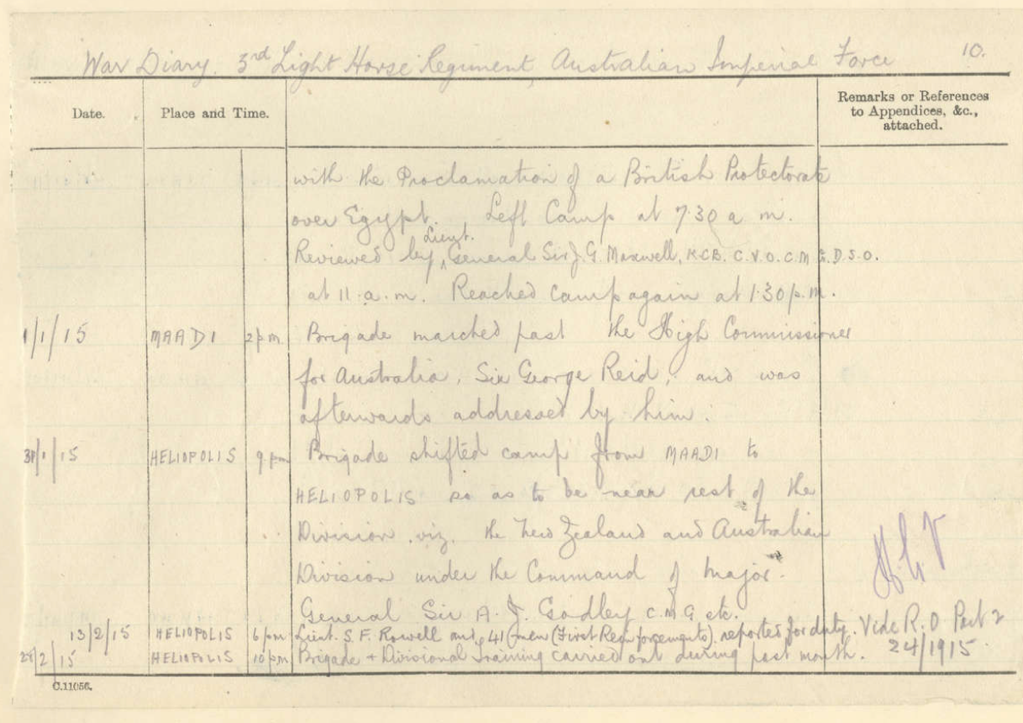 War Diary. 3rd Light Horse Regiment, Australian Imperial Force 10.
Date. Place and Time. Remarks or References to Appendices, &c., attached.
with the Proclamation of a British Protectorate
over Egypt. Left Camp at 7.30 a m.
Reviewed by Lieut. General Sir J. G. Maxwell, K.C.B. C.V.O. C.M.G. D.S.O.
at 11 a.m. Reached camp again at 1.30 p.m.
1/1/15 MAADI 2 pm Brigade marched past the High Commissioner
for Australia, Sir George Reid, and was
afterwards addressed by him.
31/1/15 HELIOPOLIS 9 pm Brigade shifted camp from MAADI to
HELIOPOLIS so as to be near rest of the
Division. viz. the New Zealand and Australian
Division under the Command of Major.
General Sir A. J. Godley C.M.G etc.
13/2/15 HELIOPOLIS 6 pm Lieut. S. F. Rowell and 41 men (First Reinforcements) reported for duty. Vide R.O Part 2
24/1915.
28/2/15 HELIOPOLIS 10 pm Brigade + Divisional Training carried out during past month.
C.11056.